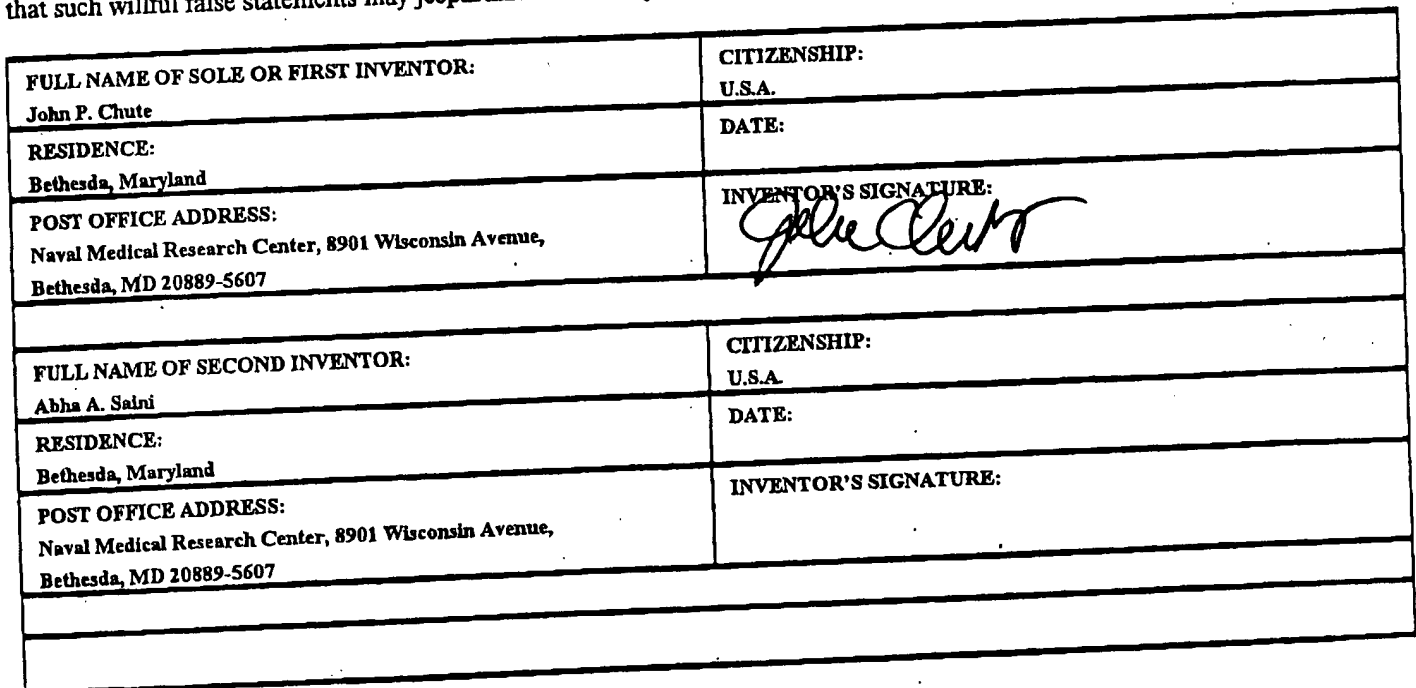 that such willful false statements may
FULL NAME OF SOLE OR FIRST INVENTOR:
John P. Chute
CITIZENSHIP:
U.S.A.
RESIDENCE:
Bethesda, Maryland
DATE:
POST OFFICE ADDRESS:
Naval Medical Research Center, 8901 Wisconsin Avenue,
Bethesda, MD 20889-5607
INVENTOR'S SIGNATURE:
FULL NAME OF SECOND INVENTOR:
Abha A. Saini
CITIZENSHIP:
U.S.A.
RESIDENCE:
Bethesda, Maryland
DATE:
POST OFFICE ADDRESS:
Naval Medical Research Center, 8901 Wisconsin Avenue,
Bethesda, MD 20889-5607
INVENTOR'S SIGNATURE: